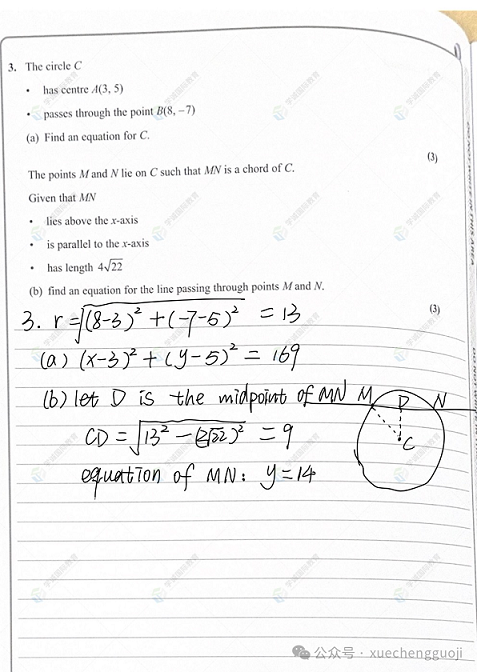 3. The circle C
• has centre A(3, 5)
• passes through the point B(8, −7)
(a) Find an equation for C.
(3)
The points M and N lie on C such that MN is a chord of C.
Given that MN
• lies above the x-axis
• is parallel to the x-axis
• has length 4√22
(b) find an equation for the line passing through points M and N.
(3)
3. r = √((8-3)² + (-7-5)²) = 13
(a) (x-3)² + (y-5)² = 169
(b) let D is the midpoint of MN
M D N
CD = √(13² - (2√22)²) = 9
C
equation of MN: y = 14
公众号 · xuechengguoji